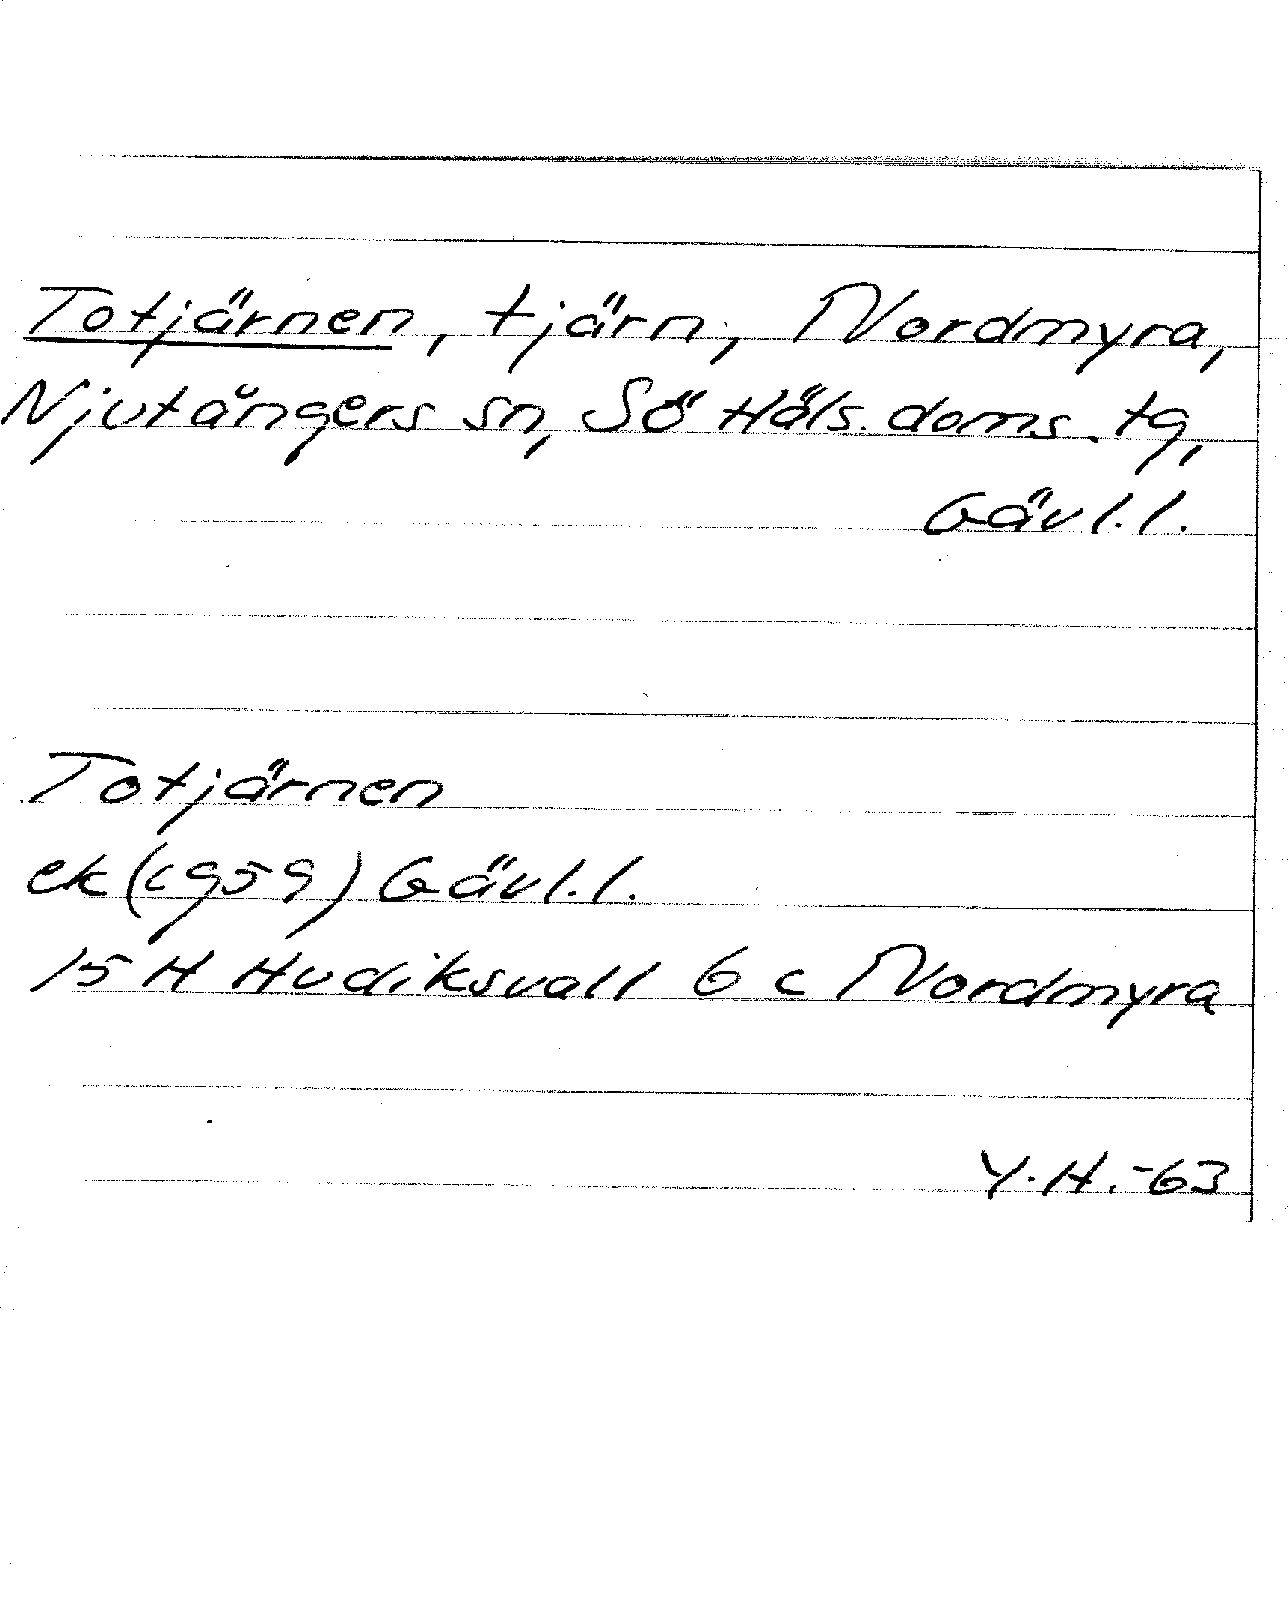 Totjärnen, tjärn, Nordmyra,
Njutångers sn, Sö Häls. doms. tg,
Gävl.l.
Totjärnen
ek (c959) Gävl.l.
15 H Hudiksvall 6 c Nordmyra
Y.H.-63